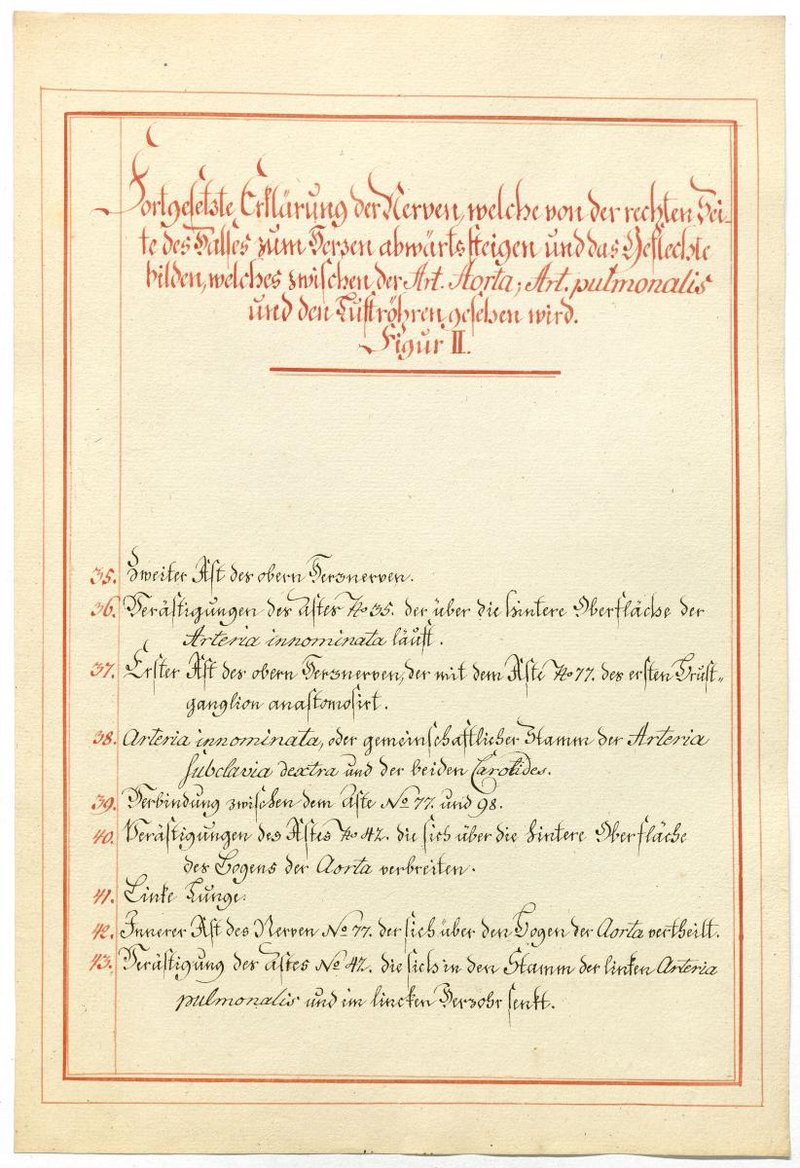 Fortgesetzte Erklärung der Nerven, welche von der rechten Sei-
te des Halses zum Herzen abwärts steigen und das Geflechte
bilden, welches zwischen der Art. Aorta; Art. pulmonalis
und den Luftröhren gesehen wird.
Figur II.
35. Zweiter Ast des obern Herznerven.
36. Verästigungen des Astes No 35. der über die hintere Oberfläche der
Arteria innominata läuft.
37. Erster Ast des obern Herznerven, der mit dem Aste No 77. des ersten Brust-
ganglion anastomosirt.
38. Arteria innominata, oder gemeinschaftlicher Stamm der Arteria
subclavia dextra und der beiden Carotides.
39. Verbindung zwischen dem Aste No 77. und 98.
40. Verästigungen des Astes No 42. die sich über die hintere Oberfläche
des Bogens der Aorta verbreiten.
41. Linke Lunge.
42. Innerer Ast des Nerven No 77. der sich über den Bogen der Aorta vertheilt.
43. Verästigung des Astes No 42. die sich in den Stamm der linken Arteria
pulmonalis und im lincken Herzohr senkt.